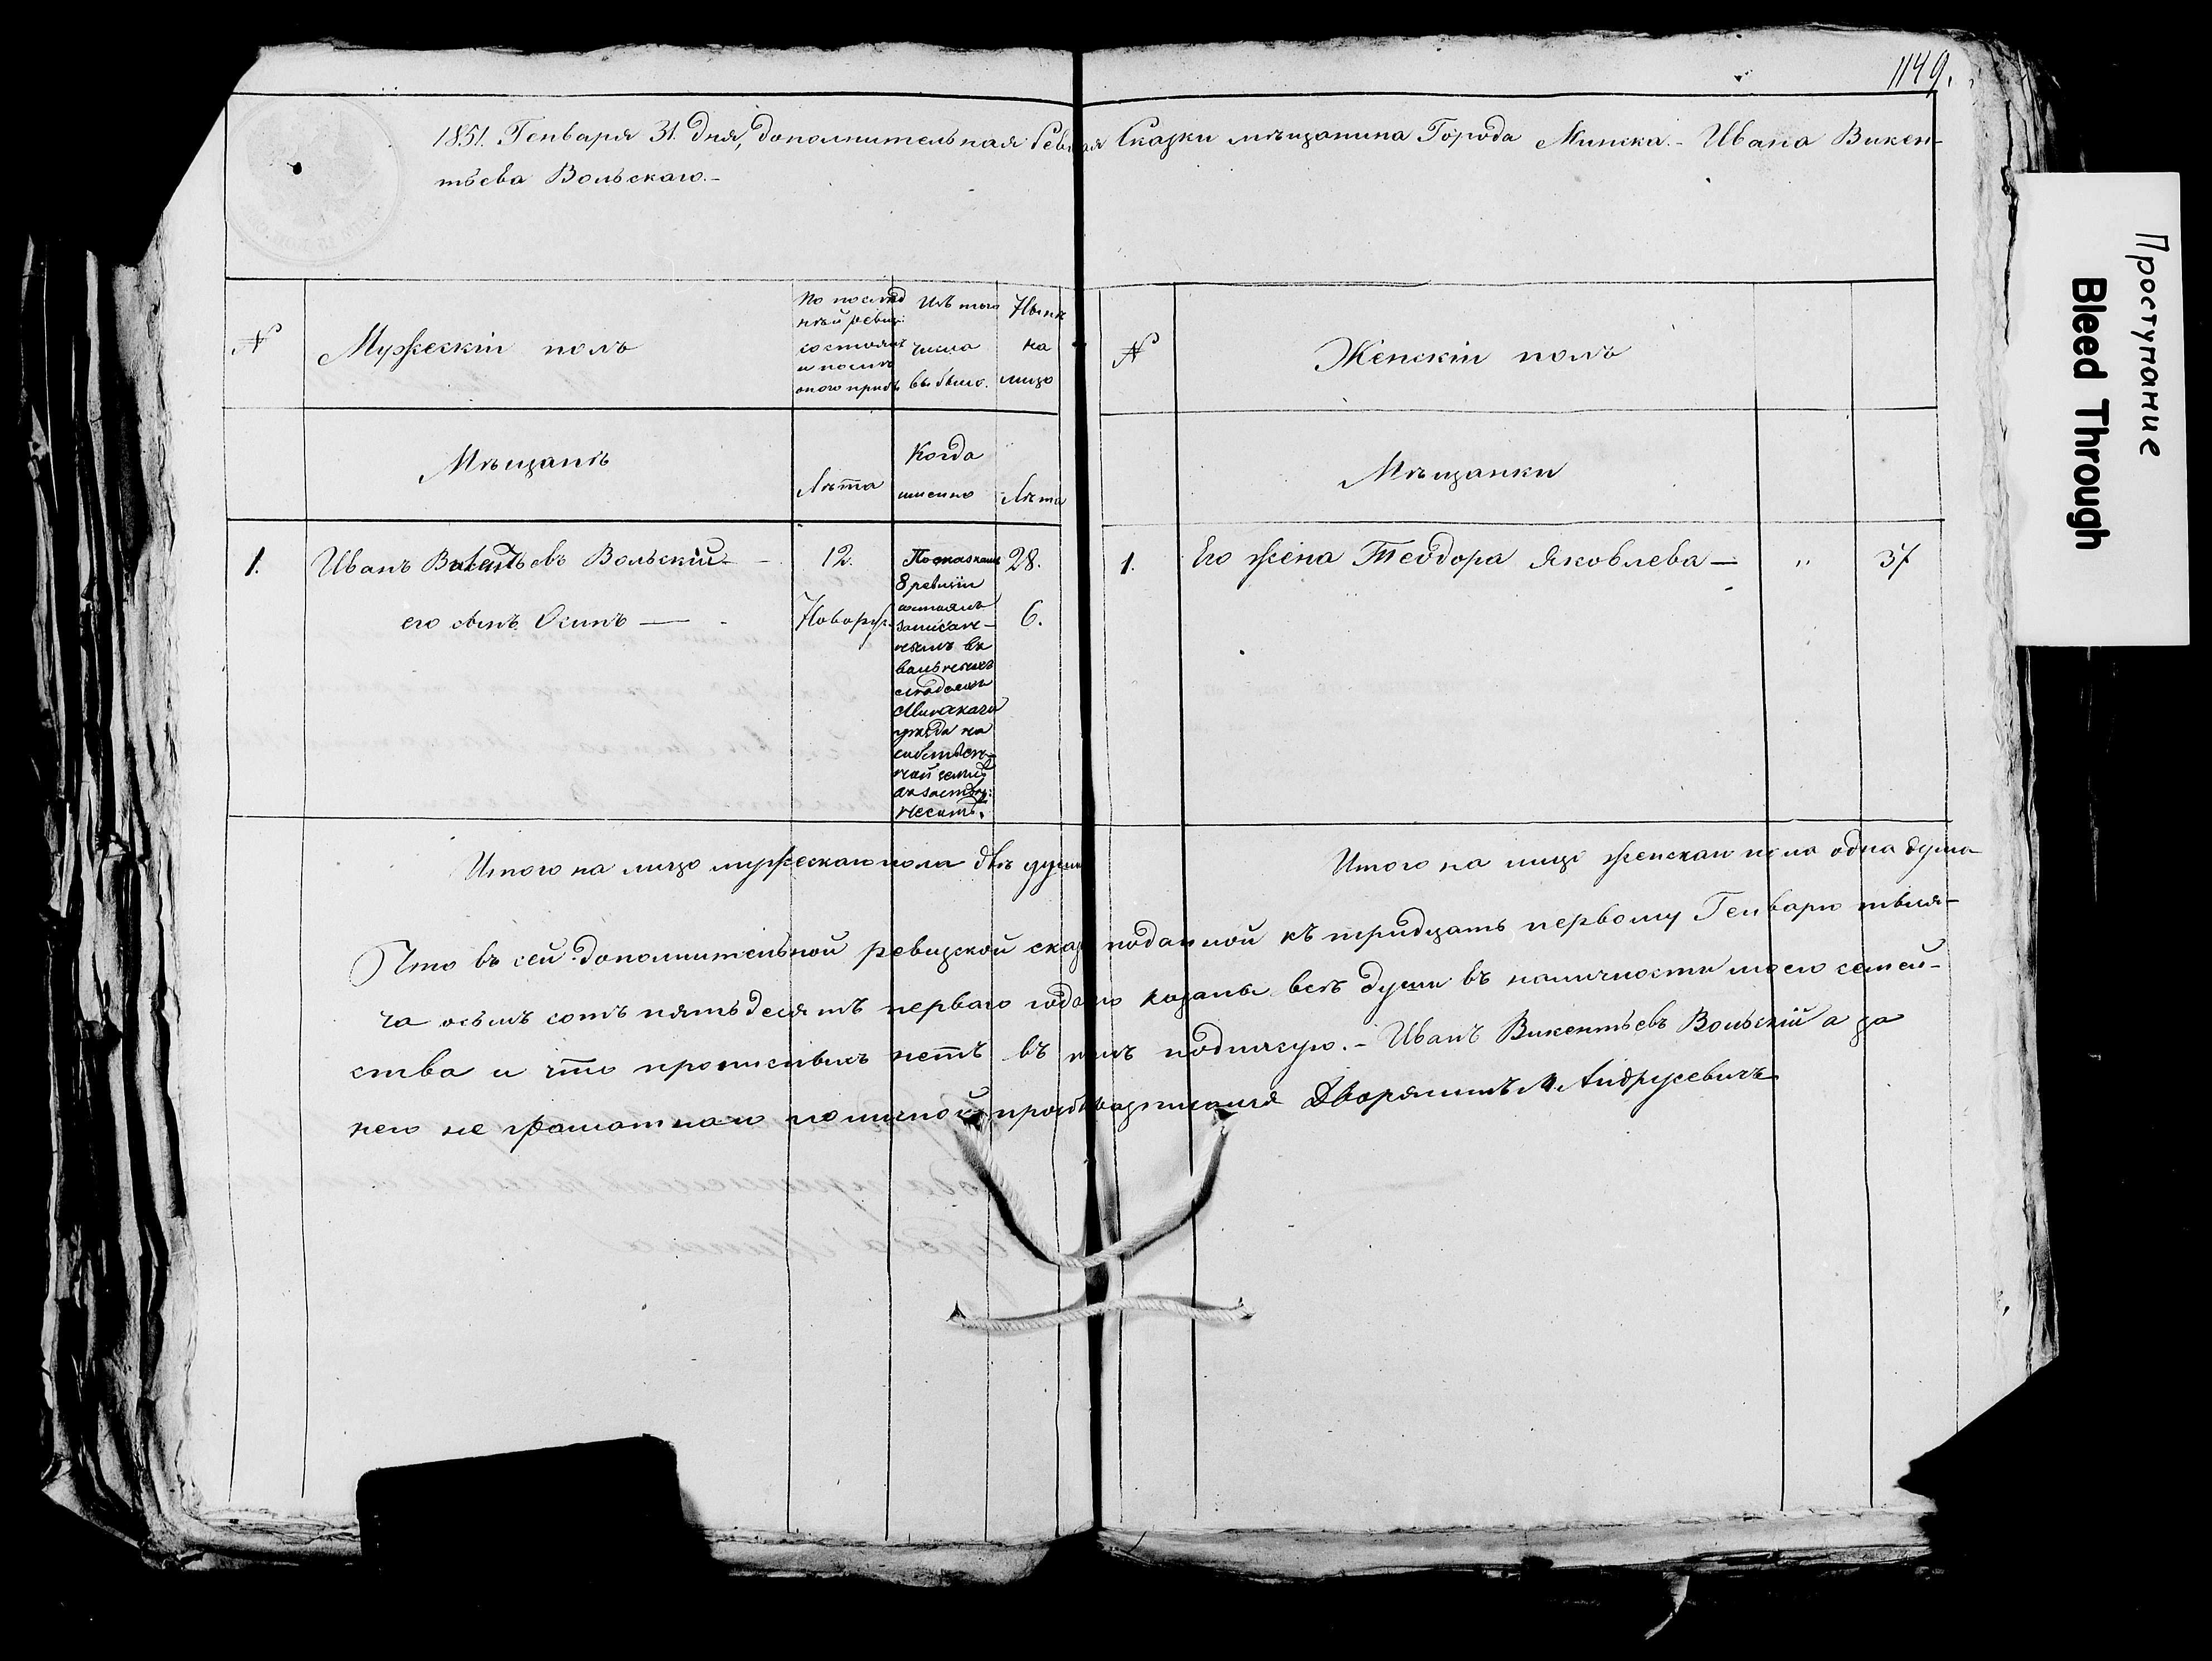 1149.
1851. Генваря 31. дня, дополнительная Сказки мѣщанина Города Минска.- Ивана Викен-
тьева Вольскаго.-
№
Мужескiй полъ
По послѣд
нѣй ревиз:
состояло
и послѣ
оного приб:
Изъ того
числа
выбыло.
Нынѣ
на
лицо
№
Женскiй полъ
Мѣщанъ
Лѣта
Когда
именно
Лѣта
Мѣщанки
1.
Иванъ Викентьевъ Вольскiй —
12.
28.
его сынъ Осипъ —
Новорж.
6.
8 ревизiи
состоялъ
записан-
нымъ въ
вольныхъ
людяхъ
Минскаго
уѣзда на
собствен-
ной земли
1.
Его жена Теодора Яковлева —
"
37
Итого на лицо мужескаго пола двѣ души
Итого на лицо женскаго пола одна душа
Что въ сей дополнительной ревизской сказкѣ поданной къ тридцать первому Генварю тыся-
ча осьмъ сотъ пятьдесятъ перваго года показаны всѣ души въ наличности моего семей-
ства и что прописныхъ нетъ въ томъ подписую.- Иванъ Викентьевъ Вольскiй а за
него не грамотнаго по личной прозьбѣ росписался Дворянинъ Андрусевичъ
Проступание
Bleed Through